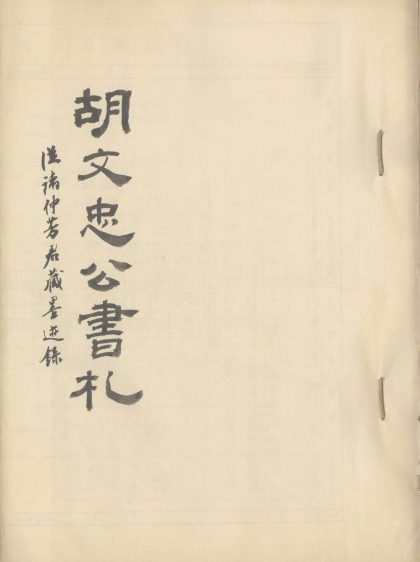 胡文忠公書札
從褚仲芳君藏墨迹錄